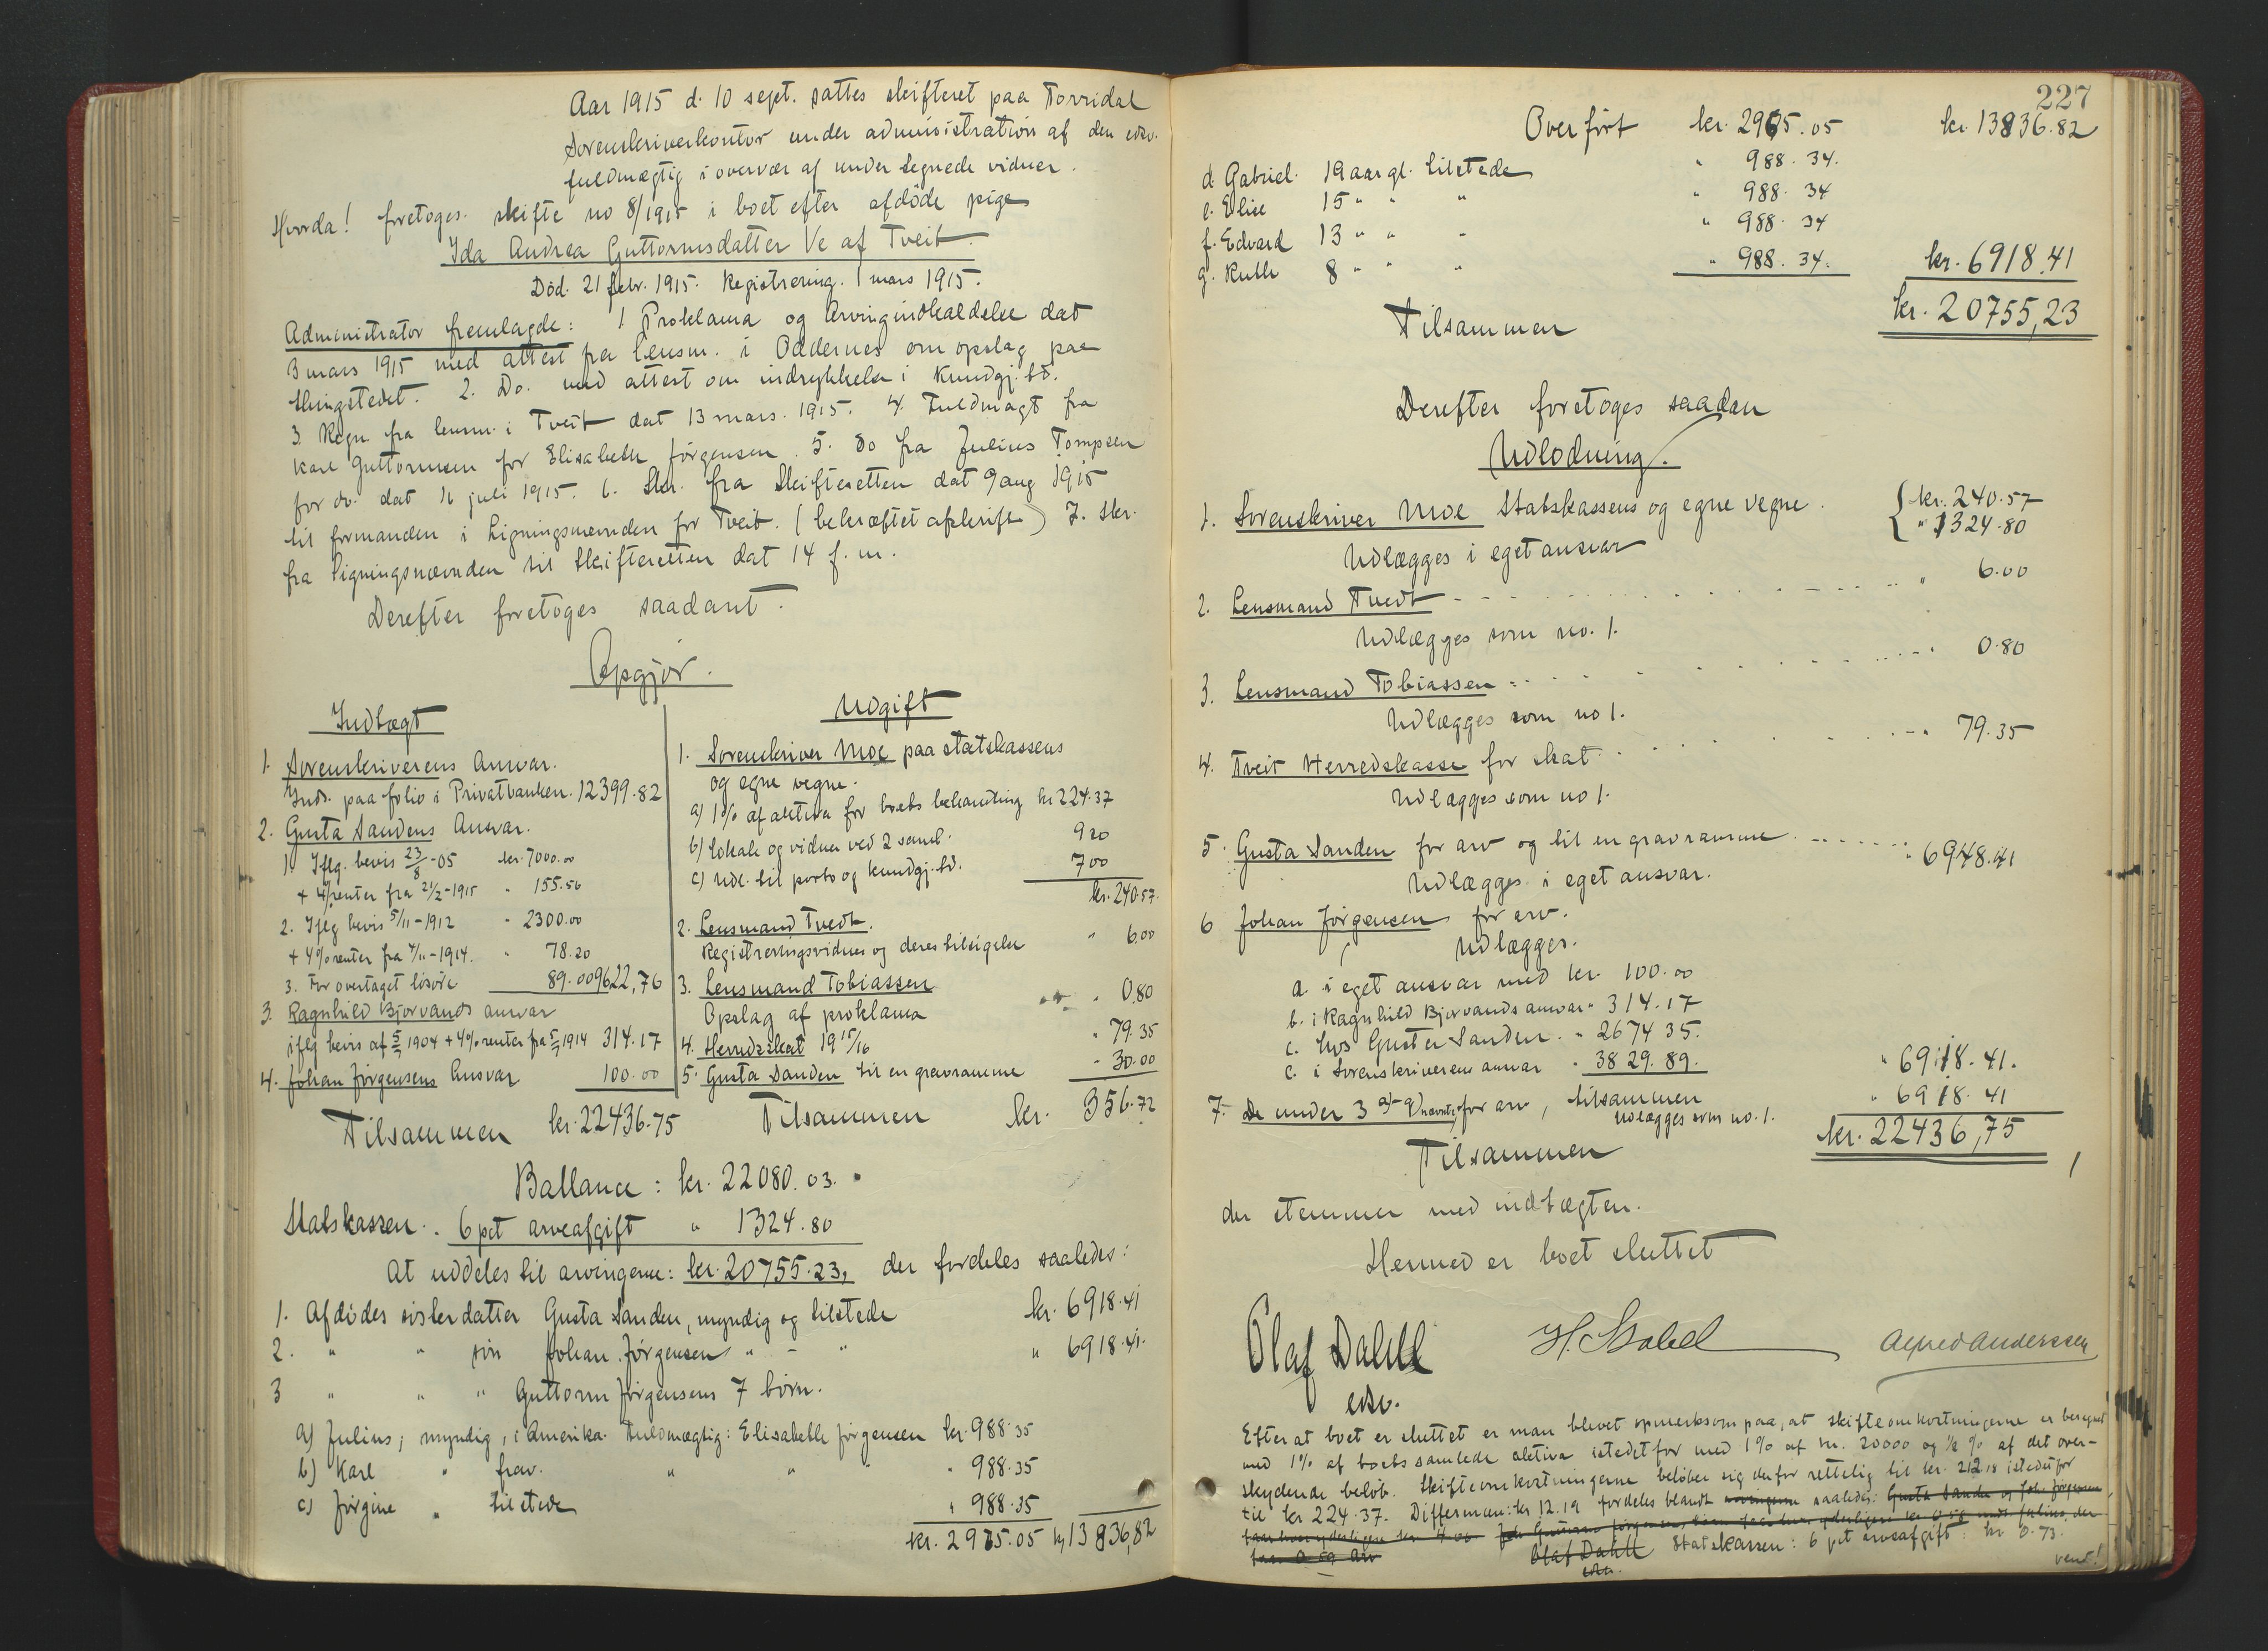 Aar 1915 d. 10 sept. sattes skifteret paa Torridal
Sorenskriverkontor under administration af den edsv.
fuldmægtig i overvær af undertegnede vidner.
Hvorda! foretoges skifte no 8/1915 i boet efter afdöde pige
Ida Andrea Guttormsdatter Ve af Tveit.
Död. 21 febr. 1915. Registrering. 1 mars 1915.
Administrator fremlagde: 1 Proklama og Arvingindkaldelse dat
3 mars 1915 med attest fra lensm. i Oddernes om opslag paa
thingstedet. 2. Do. med attest om indrykkelse i Kundgj. td.
3 Regn. fra lensm. i Tveit dat 13 mars. 1915. 4. Fuldmagt fra
Karl Guttormsen for Elisabeth Jörgensen. 5. do fra Julius Tompsen
for do. dat 16 juli 1915. 6. Skr. fra Skifteretten dat 9 aug 1915
til formanden i Ligningsnævnden for Tveit. (bekræftet afskrift) 7. Skr.
fra ligningsnævnden til Skifteretten dat 14 f. m.
Derefter foretoges saadant.
Opgjör.
Indtægt
1. Sorenskriverens Ansvar.
Inds. paa folio i Privatbanken. 12399.82
2. Gusta Sandens Ansvar.
1. Iflg. bevis 23/8-05 kr. 7000.00
+ 4% renter fra 21/2-1915 " 155.56
2. Iflg bevis 5/11-1912 " 2300.00
+ 4% renter fra 4/11-1914. " 78.20
3. For overtaget lösöre 89.00 9622,76
3. Ragnhild Bjorvands ansvar
iflg bevis af 5/7 1904 + 4% renter fra 5/7 1914 314.17
4. Johan Jörgensens Ansvar 100.00
Tilsammen kr. 22436.75
Udgift
1. Sorenskriver Moe paa statskassens
og egne vegne.
a) 1% af aktiva for boets behandling kr 224.37
b) Lokale og vidner ved 2 saml. 9 20
c) Udl. til porto og kundgj. td. 7 00
kr. 240.57.
2. Lensmand Tvedt.
Registreringsvidner og deres tilsigelse " 6.00
3. Lensmand Tobiassen
Opslag af proklama " 0.80
4. Herredsskat 19 15/16 " 79.35
5. Gusta Sanden til en gravramme " 30.00
Tilsammen kr. 356.72
Ballance: kr. 22080.03.
Statskassen. 6 pct arveafgift " 1324.80
At uddeles til arvingerne: kr. 20755.23, der fordeles saaledes:
1. Afdödes sisterdatter Gusta Sanden, myndig og tilstede kr. 6918.41
2. " " sön Johan Jörgensen " - " " 6918.41.
3 " " " Guttorm Jörgensens 7 börn.
a) Julius, myndig, i Amerika. Fuldmægtig: Elisabeth Jörgensen kr. 988.35
b) Karl " frav. " " " " 988.35
c) Jörgine " tilstede " 988.35
kr. 2965.05 kr 13836,82
227
Overfört kr. 2965.05 kr. 13836.82
d. Gabriel. 19 aar gl. tilstede " 988.34.
e. Elise 15 " " " " 988.34
f. Edvard 13 " " " " 988.34
g. Ruth 8 " " " " 988.34. kr. 6918.41
Tilsammen kr. 20755,23
Derefter foretoges saadan
Udlodning.
1. Sorenskriver Moe Statskassens og egne vegne. kr. 240.57
" 1324.80
Udlægges i eget ansvar
2. Lensmand Tvedt " 6.00
Udlægges som no. 1.
3. Lensmand Tobiassen " 0.80
Udlægges som no 1.
4. Tveit Herredskasse for skat " 79.35
Udlægges som no 1.
5. Gusta Sanden for arv og til en gravramme " 6948.41
Udlægges i eget ansvar.
6 Johan Jörgensen for arv.
Udlægges.
a. i eget ansvar med kr. 100.00
b. i Ragnhild Bjorvands ansvar " 314.17
c. hos Gusta Sanden. " 2674 35.
c. i Sorenskriverens ansvar " 3829.89. " 6918.41.
7. De under 3 a)-g) nævnte, for arv, tilsammen " 6918.41
Udlægges som no. 1.
Tilsammen kr. 22436,75
der stemmer med indtægten.
Hermed er boet sluttet
Olaf Dahll
edsv.
Alfred Anderssen
Efterat boet er sluttet er man blevet opmerksom paa, at skifteomkostningerne er beregnet
med 1% af boets samlede aktiva istedetfor med 1% af kr. 20000 og ½ % af det over-
skydende belöb. Skifteomkostningerne belöber sig derfor rettelig til kr. 212.18 istedetfor
til kr 224.37. Differansen: kr 12.19 fordeles blandt arvingerne saaledes: Gusta Sanden og Joh. Jörgensen
faar hver yderligere kr 4.06 Guttorm Jörgensen, som faar hver yderligere kr 0.58 undt. Julius, der
faar 0.59 Olaf Dahll Statskassen: 6 pct arveafgift: kr 0.73.
edsv. vend!